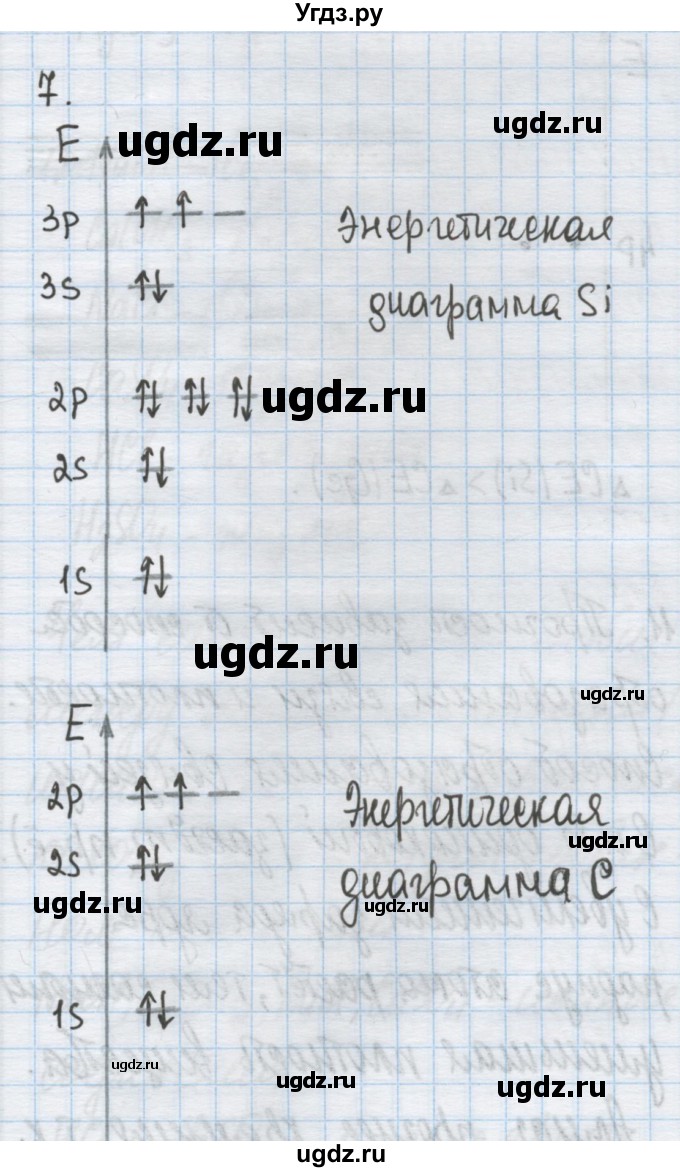 Угдз.ру
7.
E ugdz.ru ugdz.ru
3p ↑ ↑ — Энергетическая
3s ↑↓ диаграмма Si
2p ↑↓ ↑↓ ↑↓ ugdz.ru
2s ↑↓
1s ↑↓
ugdz.ru
ugdz.ru
E
2p ↑ ↑ — Энергетическая
ugdz.ru
2s ↑↓ диаграмма C
ugdz.ru ugdz.ru
1s ↑↓
ugdz.ru
ugdz.ru ugdz.ru
ugdz.ru